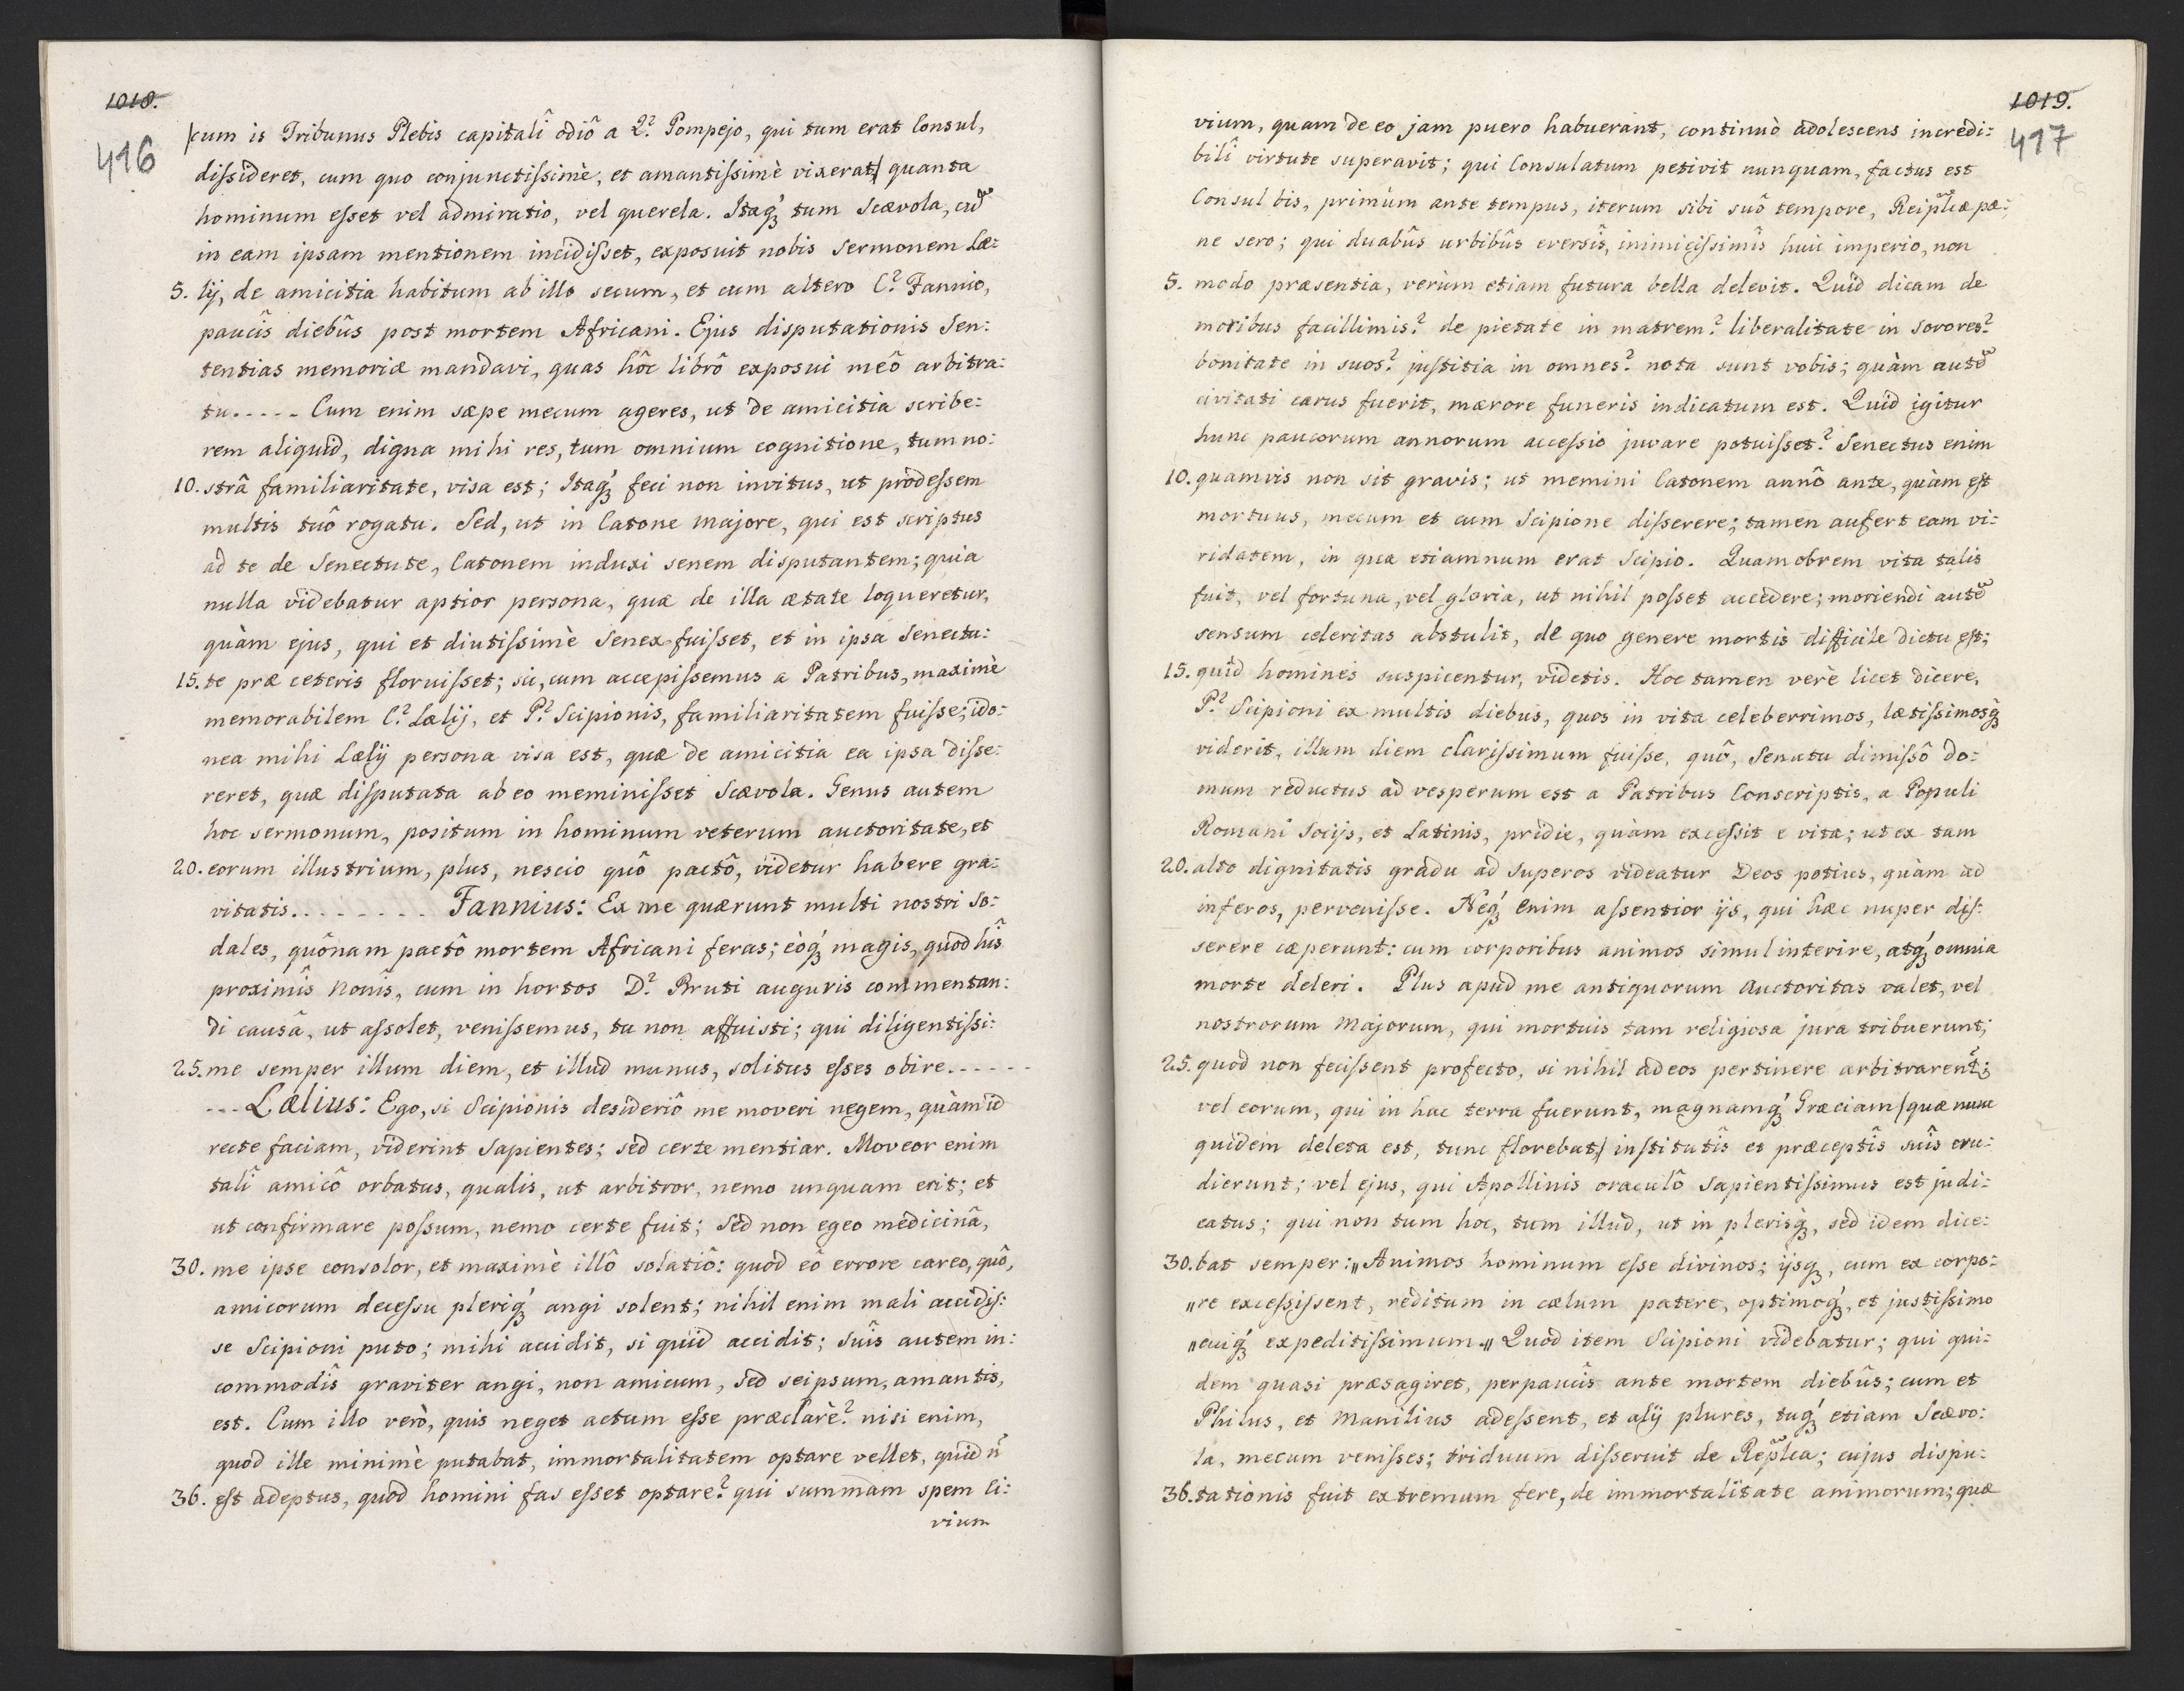 1018.
416
/cum is Tribunus Plebis capitalî odiô a Q.º Pompejo, qui tum erat Consul,
dissideret, cum quo conjunctissimè, et amantissimè vixerat/ quanta
hominum esset vel admiratio, vel querela. Itaq́ꝫ tum Scævola, cũ
in eam ipsam mentionem incidisset, exposuit nobis sermonem Læ:
5. lij, de amicitia habitum ab illo secum, et cum altero C.º Fannio,
paucîs diebûs post mortem Africani. Ejus disputationis Sen:
tentias memoriæ mandavi, quas hôc librô exposui meô arbitra:
tu..... Cum enim sæpe mecum ageres, ut de amicitia scribe:
rem aliquid, digna mihi res, tum omnium cognitione, tum no:
10. strâ familiaritate, visa est; Itaq́ꝫ feci non invitus, ut prodessem
multis tuô rogatu. Sed, ut in Catone majore, qui est scriptus
ad te de Senectute, Catonem induxi senem disputantem; quia
nulla videbatur aptior persona, quæ de illa ætate loqueretur,
quàm ejus, qui et diutissimè Senex fuisset, et in ipsa Senectu:
15. te præ ceteris floruisset; sic, cum accepissemus a Patribus, maximè
memorabilem C.º Lælij, et P.º Scipionis, familiaritatem fuisse; ido:
nea mihi Lælij persona visa est, quæ de amicitia ea ipsa disse:
reret, quæ disputata ab eo meminisset Scævola. Genus autem
hoc sermonum, positum in hominum veterum auctoritate, et
20. eorum illustrium, plus, nescio quô pactô, videtur habere gra:
vitatis........ Fannius: Ex me quærunt multi nostri so:
dales, quônam pactô mortem Africani feras; eòq́ꝫ magis, quod hîs
proximîs Nonîs, cum in hortos D.º Bruti auguris commentan:
di causâ, ut assolet, venissemus, tu non affuisti; qui diligentissi:
25. me semper illum diem, et illud munus, solitus esses obire......
... Lælius: Ego, si Scipionis desideriô me moveri negem, quàm id
recte faciam, viderint Sapientes; sed certe mentiar. Moveor enim
talî amicô orbatus, qualis, ut arbitror, nemo unquam erit; et
ut confirmare possum, nemo certe fuit; Sed non egeo medicinâ,
30. me ipse consolor, et maximè illô solatiô: quod eô errore careo, quô,
amicorum decessu pleriq́ꝫ angi solent; nihil enim mali accidis:
se Scipioni puto; mihi accidit, si quid accidit; Suîs autem in:
commodîs graviter angi, non amicum, sed seipsum, amantis,
est. Cum illo verò, quis neget actum esse præclarè? nisi enim,
quod ille minimè putabat, immortalitatem optare vellet, quid ñ
36. est adeptus, quod homini fas esset optare? qui summam spem ci:
vium
1019.
417
vium, quam de eo jam puero habuerant, continuò adolescens incredi:
bilî virtute superavit; qui Consulatum petivit nunquam, factus est
Consul bis, primùm ante tempus, iterum sibi suô tempore, Reip̃licæ pæ:
ne sero; qui duabûs urbibûs eversîs, inimicissimîs huic imperio, non
5. modo præsentia, verùm etiam futura bella delevit. Quid dicam de
moribus facillimis? de pietate in matrem? liberalitate in Sorores?
bonitate in suos? justitia in omnes? nota sunt vobis; quàm autẽ
civitati carus fuerit, mærore funeris indicatum est. Quid igitur
hunc paucorum annorum accessio juvare potuisset? Senectus enim
10. quamvis non sit gravis; ut memini Catonem annô ante, quàm est
mortuus, mecum et cum Scipione disserere; tamen aufert eam vi:
ridatem, in qua etiamnum erat Scipio. Quamobrem vita talis
fuit, vel fortuna, vel gloria, ut nihil posset accedere; moriendi autẽ
sensum celeritas abstulit, de quo genere mortis difficile dictu est;
15. quid homines suspicentur, videtis. Hoc tamen verè licet dicere,
P.º Scipioni ex multis diebus, quos in vita celeberrimos, lætissimosq́ꝫ
viderit, illum diem clarissimum fuisse, quô, Senatu dimissô do:
mum reductus ad vesperum est a Patribus Conscriptis, a Populi
Romani Socijs, et Latinis, pridie, quàm excessit e vita; ut ex tam
20. alto dignitatis gradu ad superos videatur Deos potius, quàm ad
inferos, pervenisse. Neq́ꝫ enim assentior ijs, qui hæc nuper dis:
serere cæperunt: cum corporibus animos simul interire, atq́ꝫ omnia
morte deleri. Plus apud me antiquorum Auctoritas valet, vel
nostrorum Majorum, qui mortuis tam religiosa jura tribuerunt;
25. quod non fecissent profecto, si nihil ad eos pertinere arbitrarent̃;
vel eorum, qui in hac terra fuerunt, magnamq́ꝫ Græciam /quæ nunc
quidem deleta est, tunc florebat/ institutîs et præceptîs suîs eru:
dierunt; vel ejus, qui Apollinis oraculô Sapientissimus est judi:
catus; qui non tum hoc, tum illud, ut in plerisq́ꝫ, sed idem dice:
30. bat semper: „Animos hominum esse divinos; ijsqꝫ, cum ex corpo:
„re excessissent, reditum in cælum patere, optimoq́ꝫ, et justissimo
„cuiq́ꝫ expeditissimum.„ Quod item Scipioni videbatur; qui qui:
dem quasi præsagiret, perpaucîs ante mortem diebûs; cum et
Philus, et Manilius adessent, et alij plures, tuq́ꝫ etiam Scævo:
la, mecum venisses; triduum disseruit de Rep̃lica; cujus dispu:
36. tationis fuit extremum fere, de immortalitate animorum; quæ